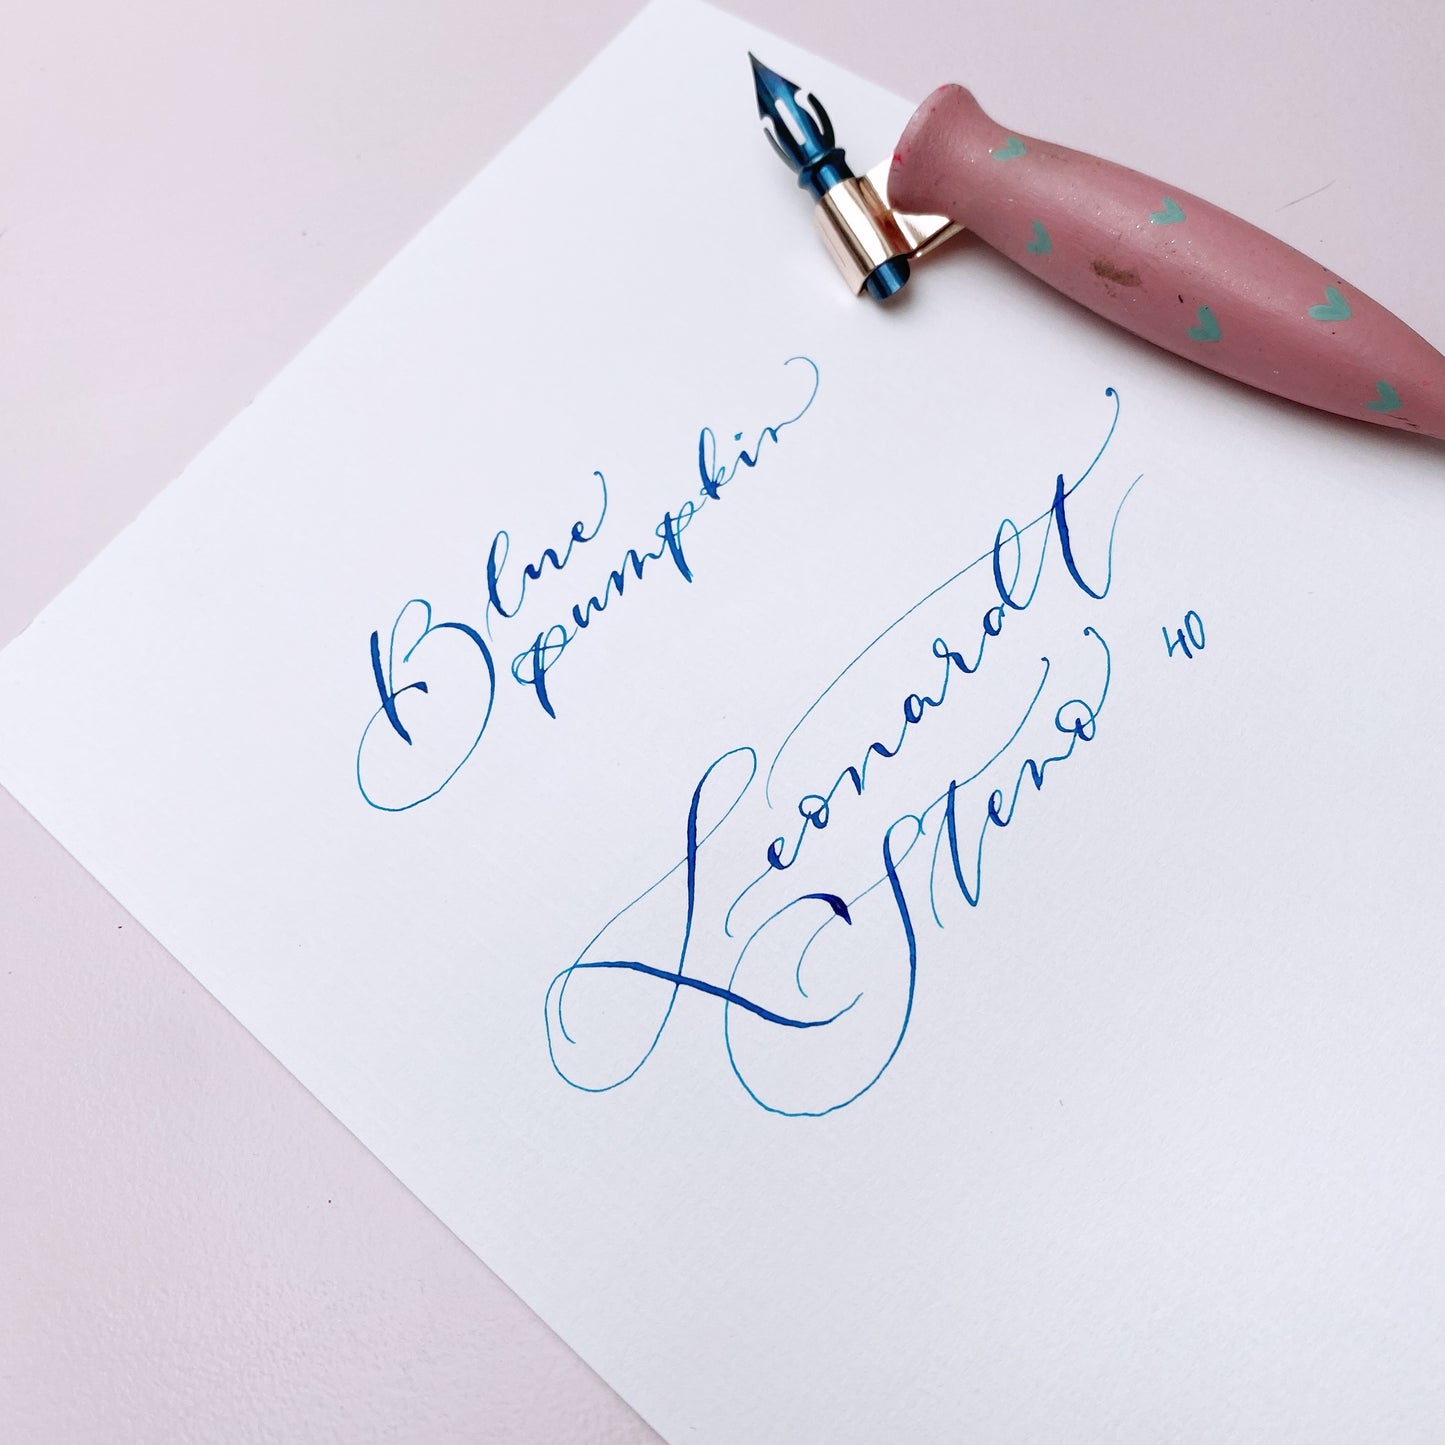 Blue
pumpkin
Leonardt
Steno 40